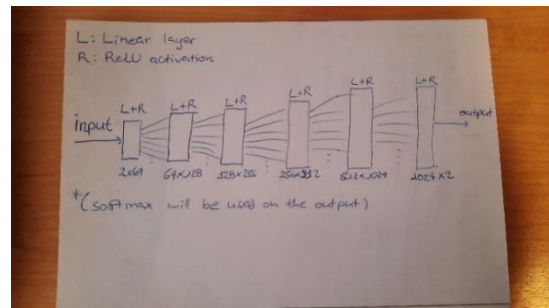 L: Linear layer
R: ReLU activation
L+R L+R L+R L+R L+R L+R
input output
2x64 64x128 128x256 256x512 512x1024 1024x2
*(softmax will be used on the output)